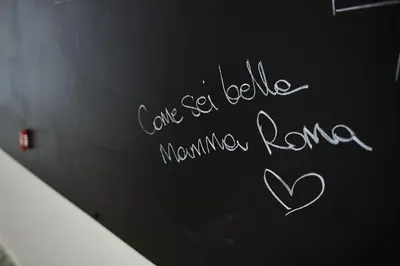 Come sei bella
Mamma Roma